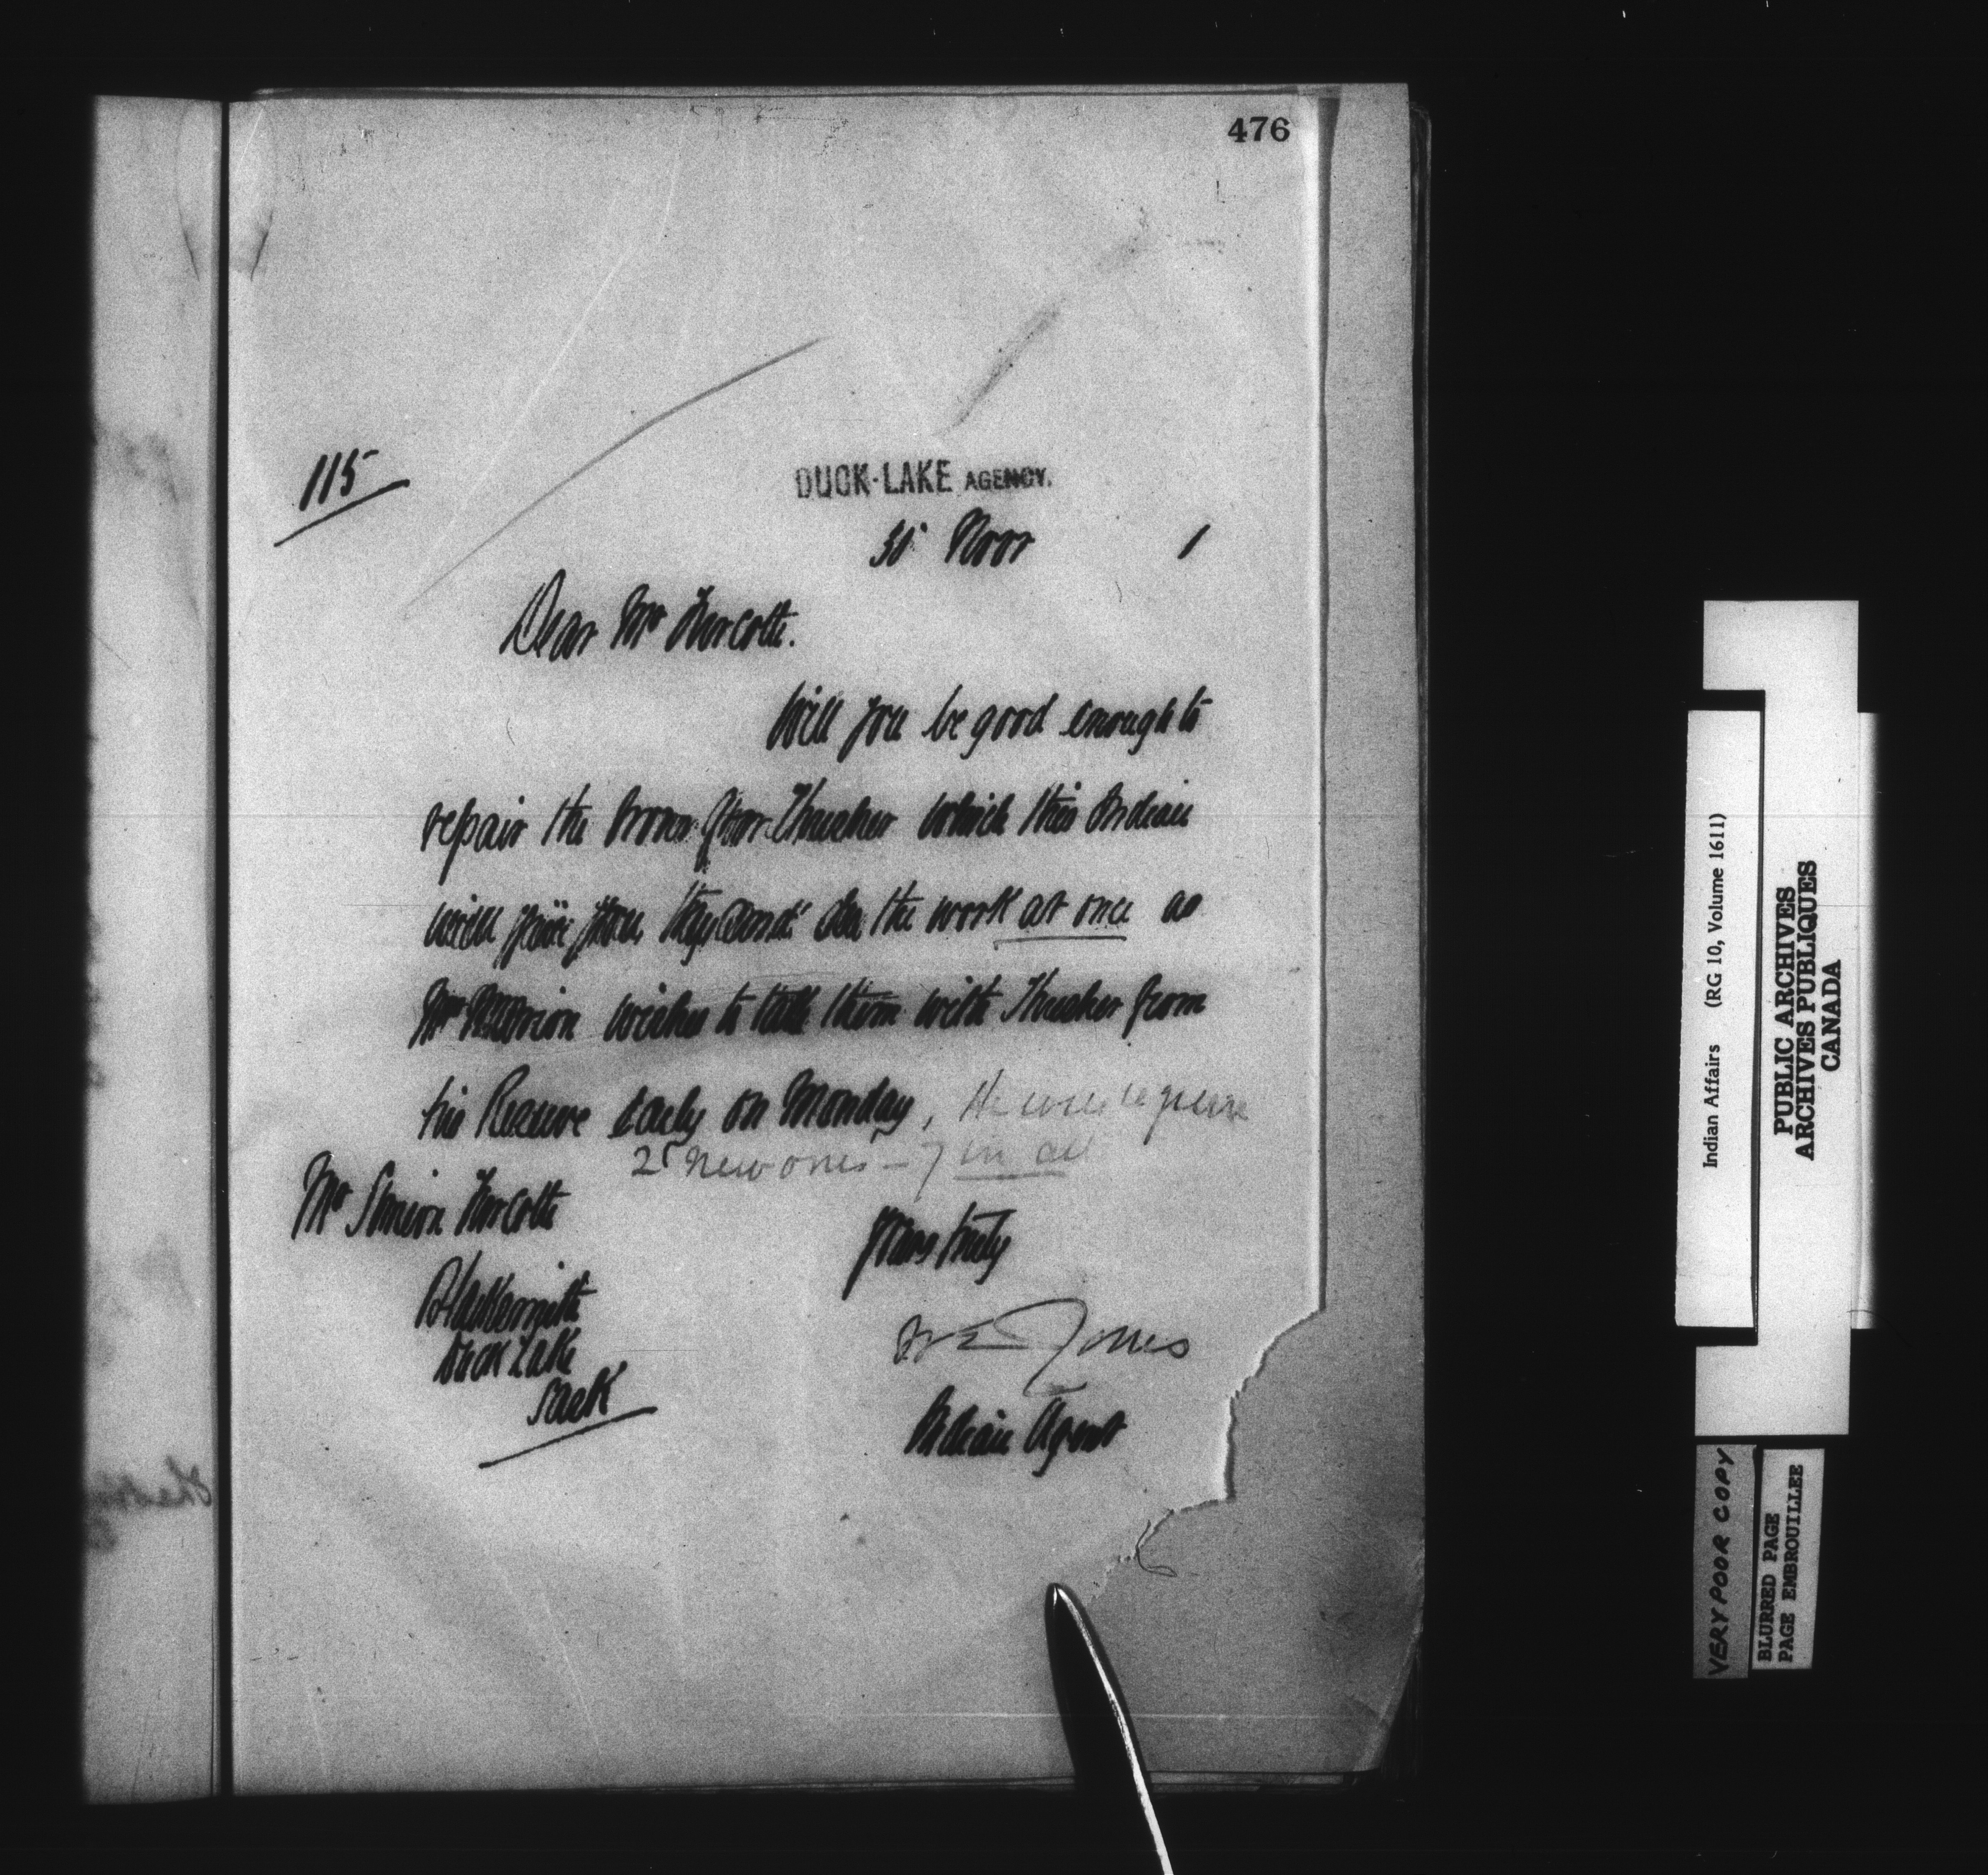 476
115
DUCK-LAKE AGENCY.
30 Novr 1
Dear Mr Turcotte.
Will you be good enough to
repair the for Thresher which this Indian
will give you, the work at once as
Mr wishes to take them with Thresher from
his Reserve early on Monday, He will require
2 new ones - 7 in all
Mr Simeon Turcotte
Blacksmith
Duck Lake
Sask
Yours truly
Jones
Indian Agent
Indian Affairs (RG 10, Volume 1611)
PUBLIC ARCHIVES
ARCHIVES PUBLIQUES
CANADA
VERY POOR COPY
BLURRED PAGE
PAGE EMBROUILLEE